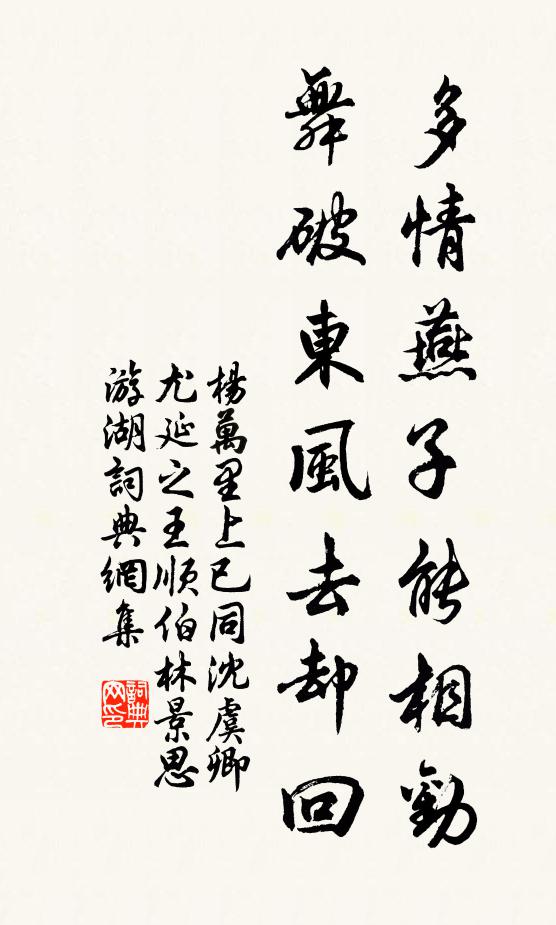 多情燕子能相勸
舞破東風去却回
楊萬里上巳同沈虞卿
尤延之王順伯林景思
游湖詞典網集
詞典网印